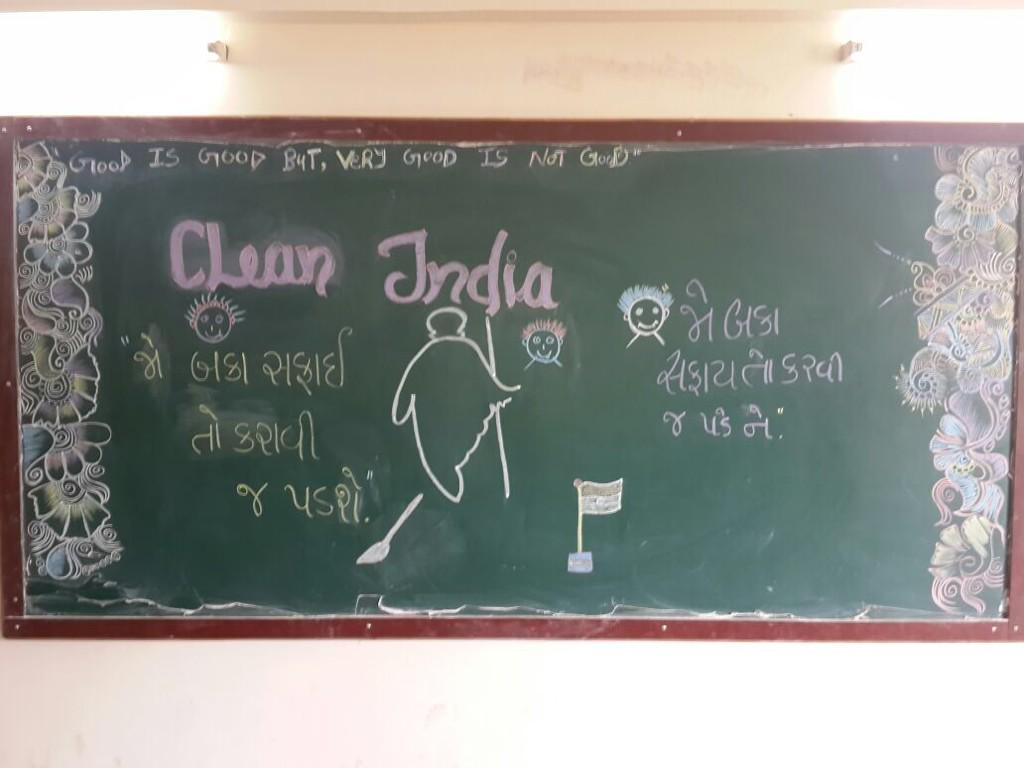 "GOOD IS GOOD BUT, VERY GOOD IS NOT GOOD"
CLean India
"જો બકા સફાઈ
તો કરાવી
જ પડશે."
"જો બકા
સફાય તો કરવી
જ પડે ને."